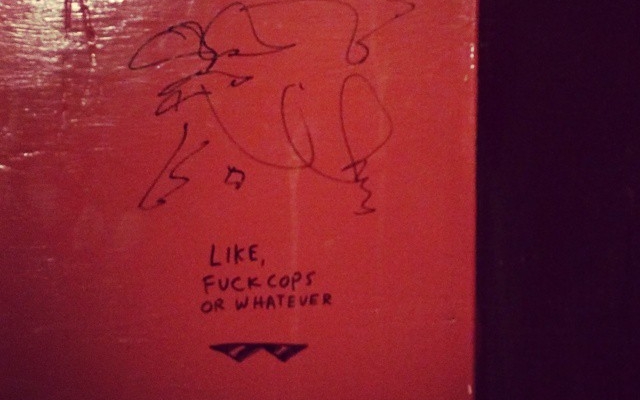 LIKE,
FUCK COPS
OR WHATEVER